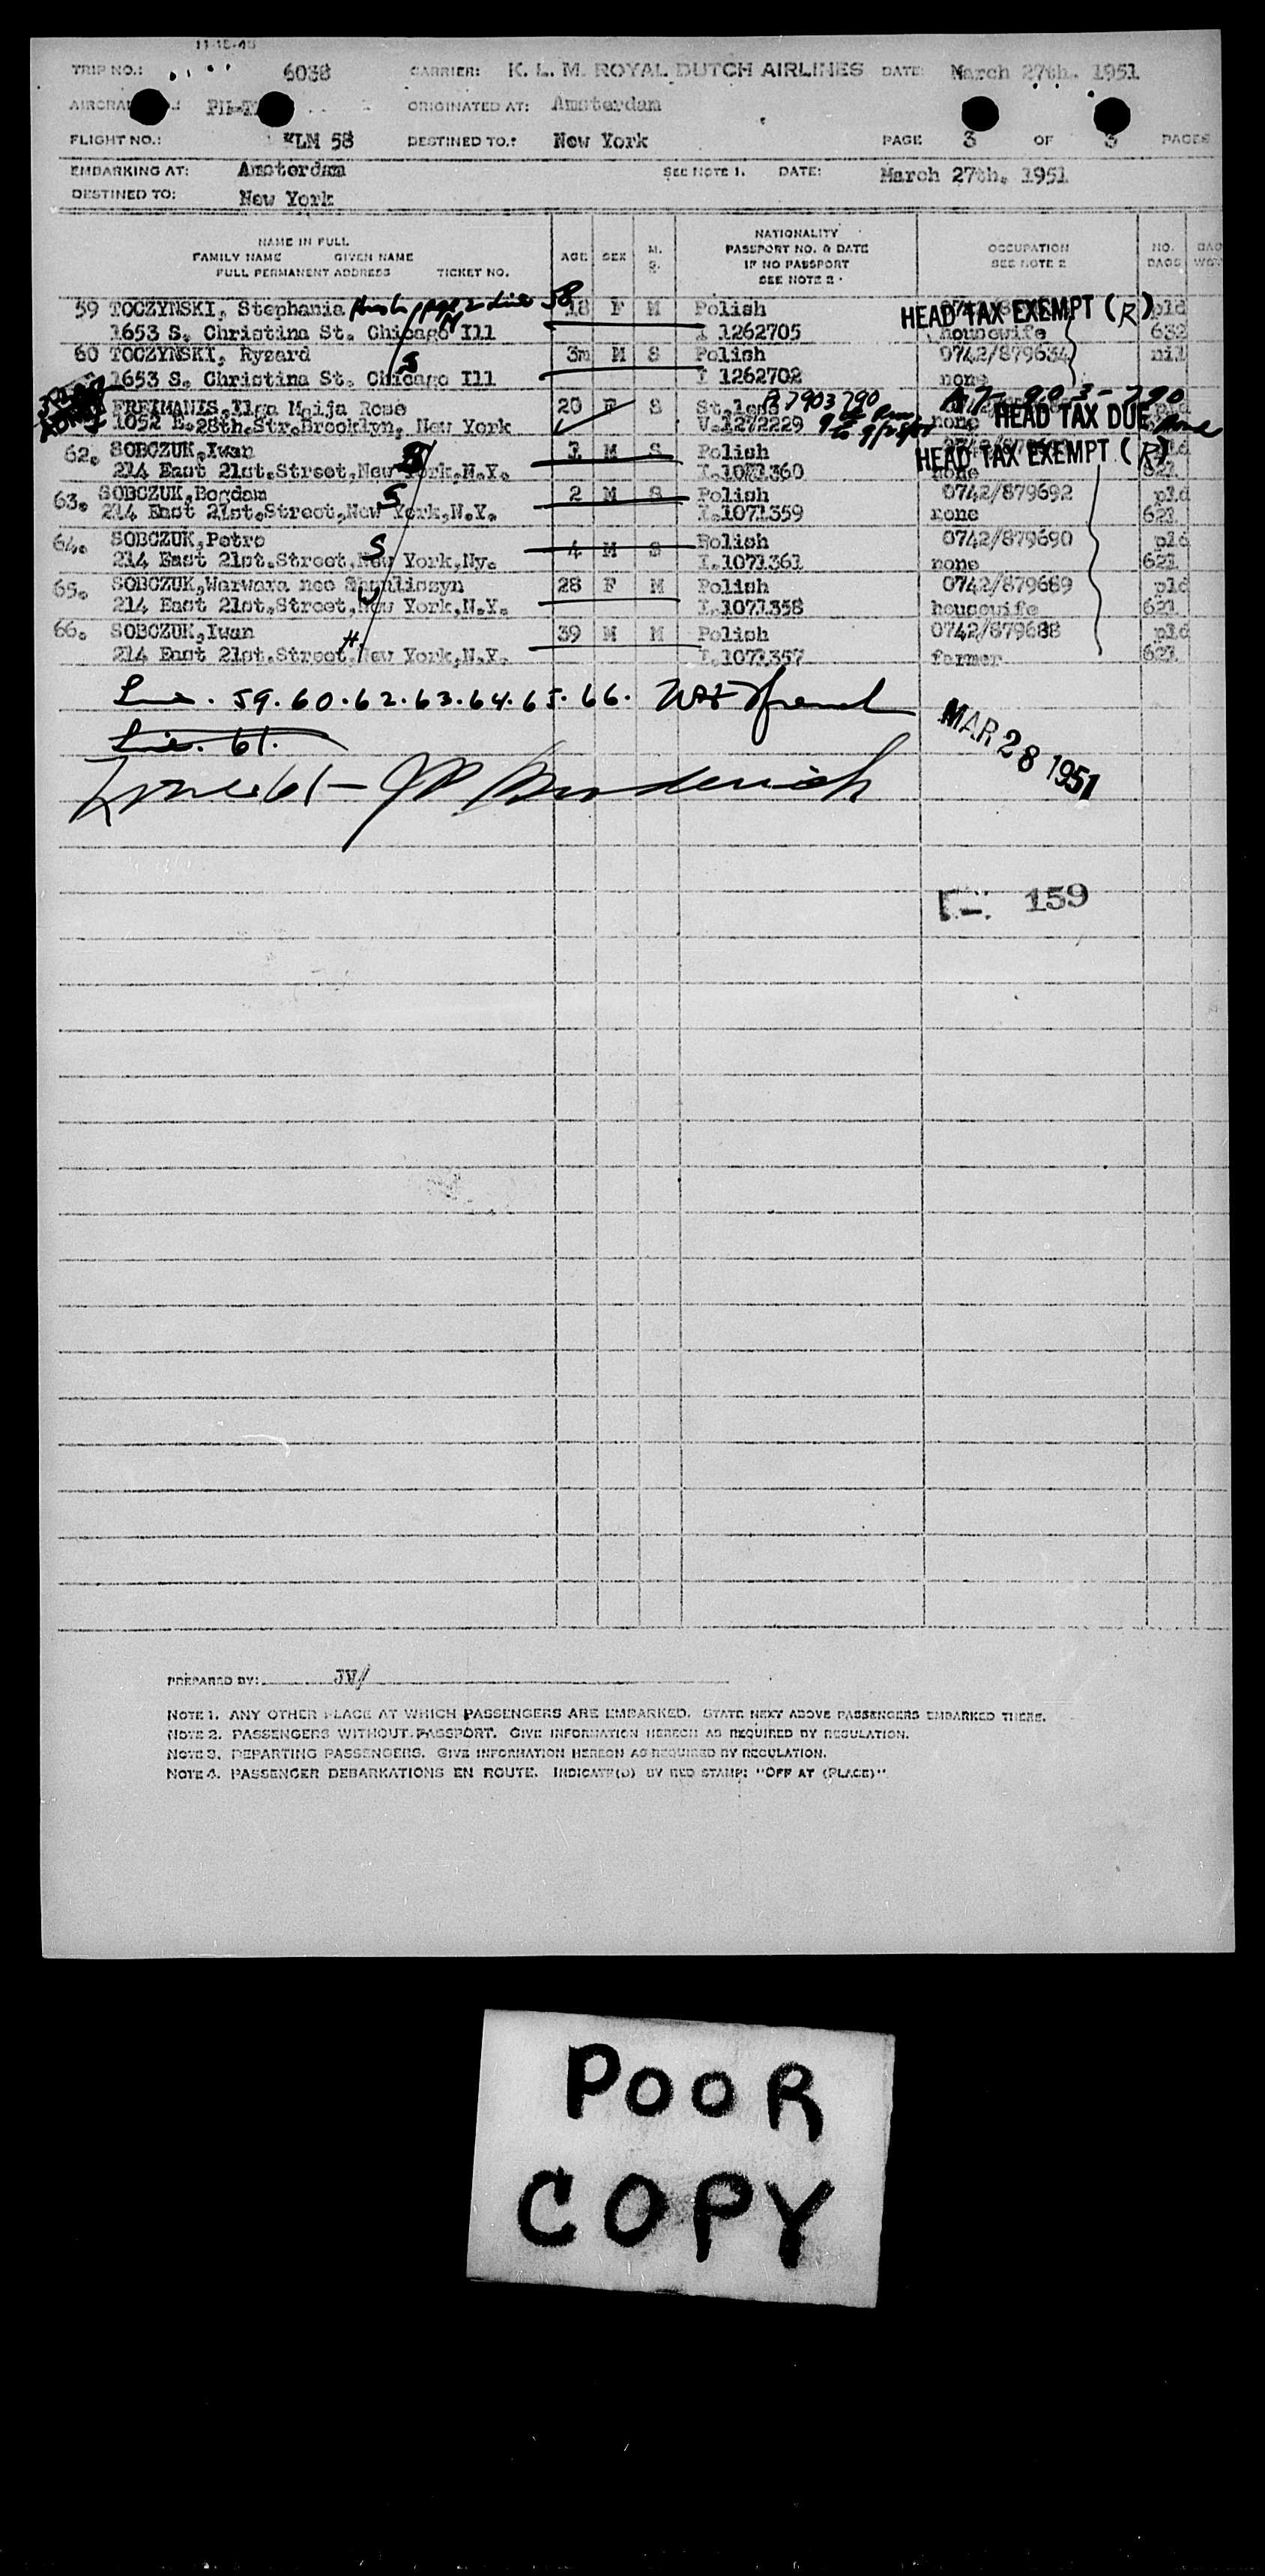 11-15-48
TRIP NO.: 6038 CARRIER: K. L. M. ROYAL DUTCH AIRLINES DATE: March 27th. 1951
ORIGINATED AT: Amsterdam
FLIGHT NO.: KLM 58 DESTINED TO.: New York PAGE 3 OF 3 PAGES
EMBARKING AT: Amsterdam SEE NOTE 1. DATE: March 27th. 1951
DESTINED TO: New York
NAME IN FULL
FAMILY NAME GIVEN NAME
FULL PERMANENT ADDRESS TICKET NO.
AGE SEX M. S.
NATIONALITY
PASSPORT NO. & DATE
IF NO PASSPORT
SEE NOTE 2.
OCCUPATION
SEE NOTE 2
NO. BAGS
59 TOCZYNSKI, Stephania line 58 18 F M Polish HEAD TAX EXEMPT (R) pld
1653 S. Christina St. Chicago Ill I 1262705 housewife 632
60 TOCZYNSKI, Ryzard S 3m M S Polish 0742/879634 nil
1653 S. Christina St. Chicago Ill I 1262702 none
FREIMANIS, Ilga Maija Rose 20 F S St.less A7903790 A7-903-790
1052 E.28th.Str.Brooklyn, New York V.1272229 none HEAD TAX DUE
62. SOBCZUK,Iwan M S Polish HEAD TAX EXEMPT (R)
214 East 21st.Street,New York,N.Y. I.1071360 none 621
63. SOBCZUK,Bogdam S 2 M S Polish 0742/879692 pld
214 East 21st.Street,New York,N.Y. I.1071359 none 621
64. SOBCZUK,Petro S 4 M S Polish 0742/879690 pld
214 East 21st.Street,New York,Ny. I.1071361 none 621
65. SOBCZUK,Warwara nee W 28 F M Polish 0742/879689 pld
214 East 21st.Street,New York,N.Y. I.1071358 housewife 621
66. SOBCZUK,Iwan H. 39 M M Polish 0742/879688 pld
214 East 21st.Street,New York,N.Y. I.1071357 farmer 621
Line. 59.60.62.63.64.65.66.
Line. 61.
MAR 28 1951
Line 61 -
159
PREPARED BY: JV/
NOTE 1. ANY OTHER PLACE AT WHICH PASSENGERS ARE EMBARKED. STATE NEXT ABOVE PASSENGERS EMBARKED THERE.
NOTE 2. PASSENGERS WITHOUT PASSPORT. GIVE INFORMATION HEREON AS REQUIRED BY REGULATION.
NOTE 3. DEPARTING PASSENGERS. GIVE INFORMATION HEREON AS REQUIRED BY REGULATION.
NOTE 4. PASSENGER DEBARKATIONS EN ROUTE. INDICATE(D) BY RED STAMP: "OFF AT (PLACE)"
POOR
COPY